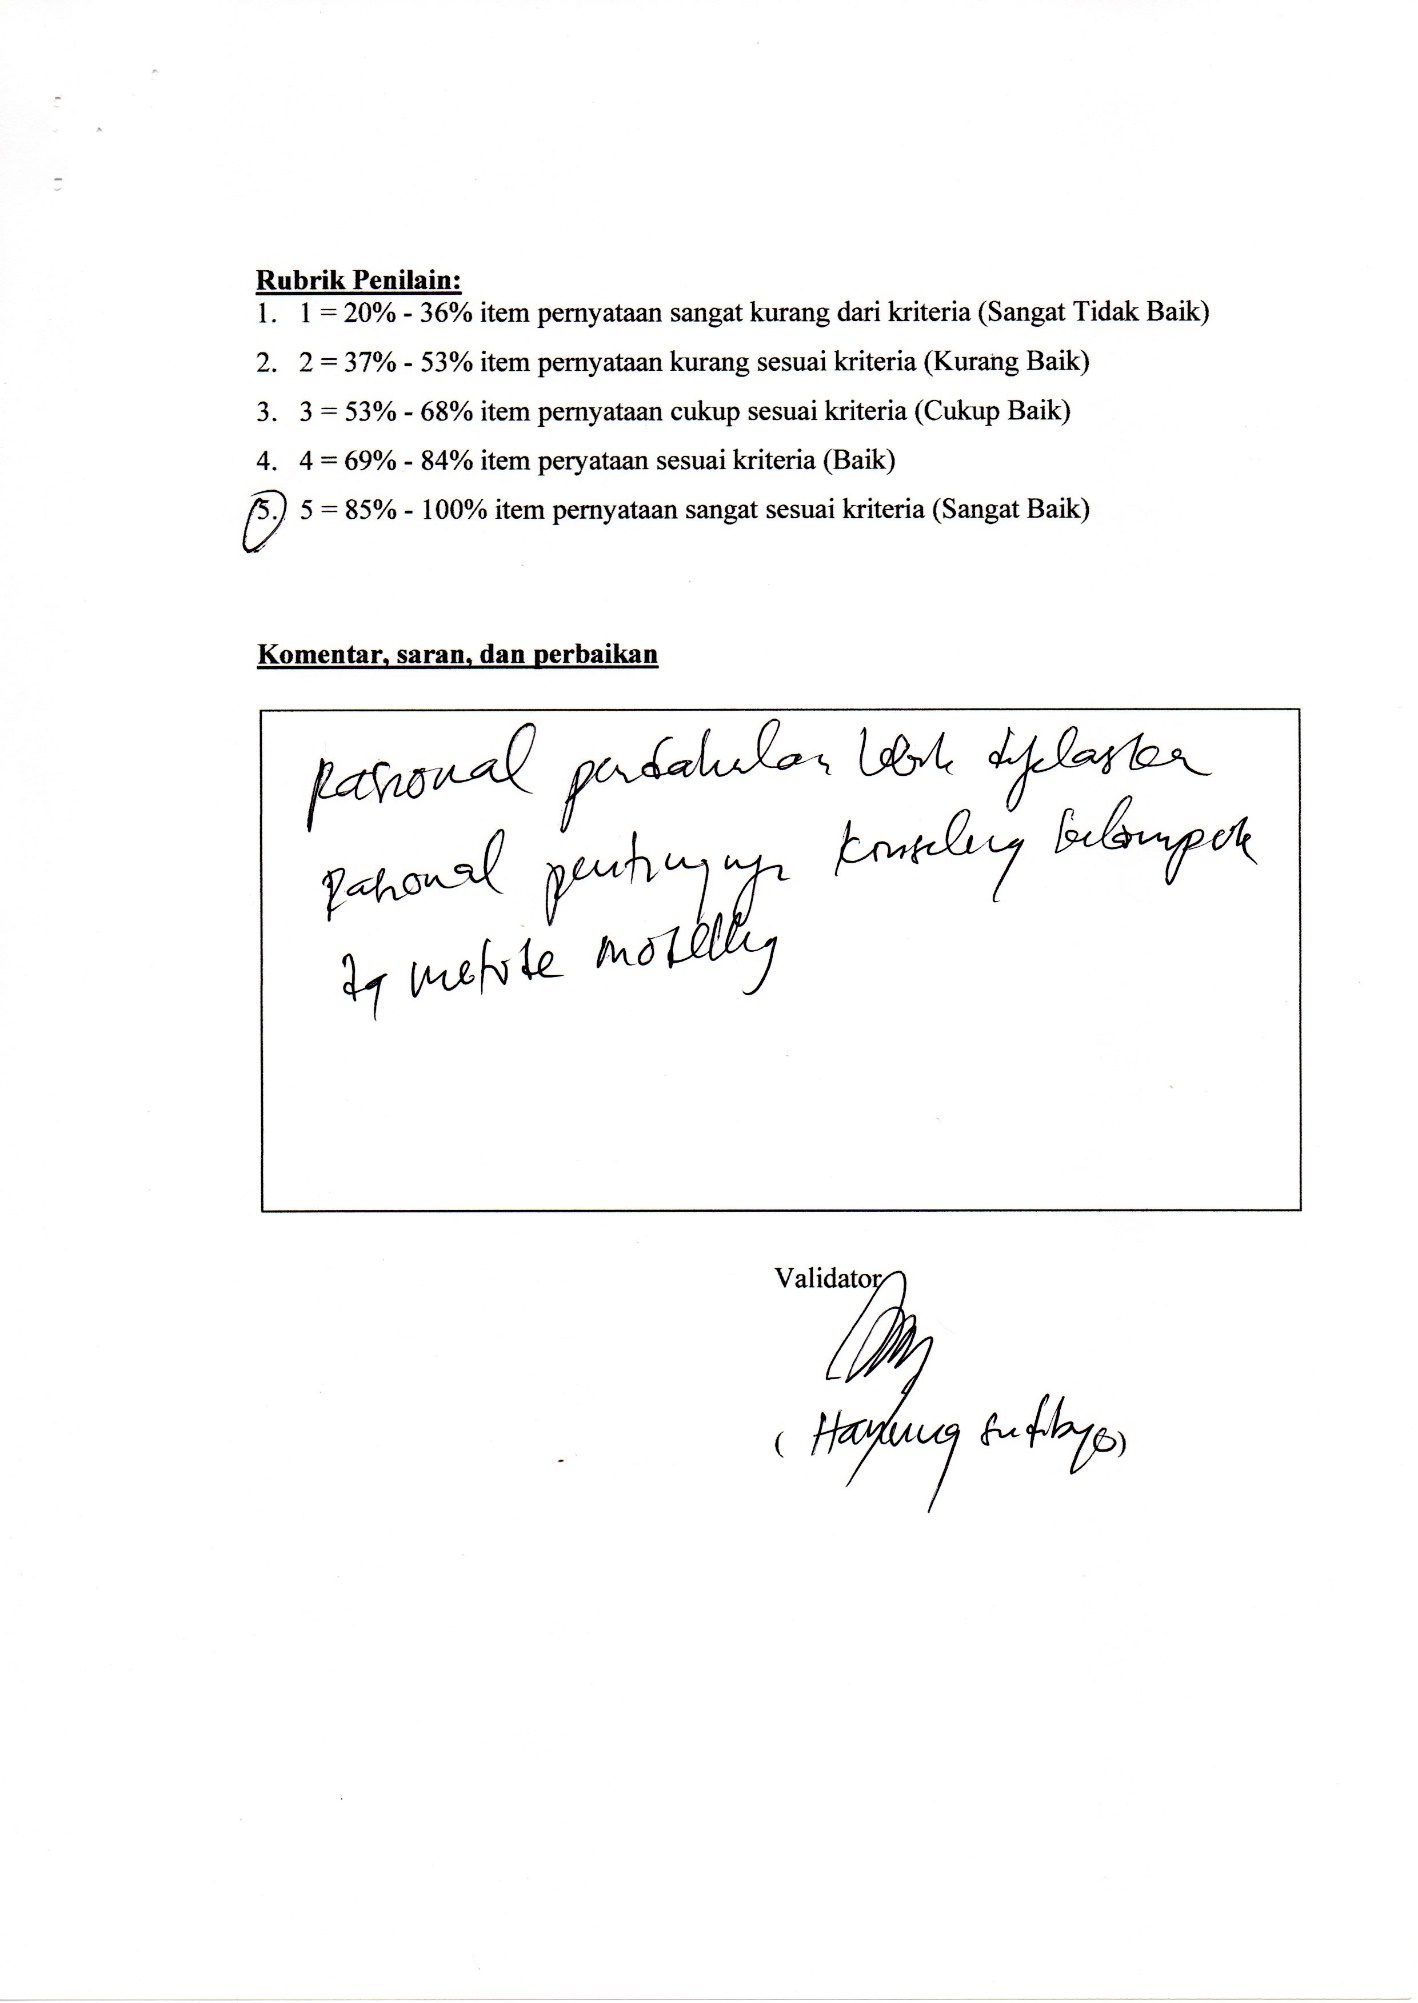 Rubrik Penilain:
1. 1 = 20% - 36% item pernyataan sangat kurang dari kriteria (Sangat Tidak Baik)
2. 2 = 37% - 53% item pernyataan kurang sesuai kriteria (Kurang Baik)
3. 3 = 53% - 68% item pernyataan cukup sesuai kriteria (Cukup Baik)
4. 4 = 69% - 84% item peryataan sesuai kriteria (Baik)
5. 5 = 85% - 100% item pernyataan sangat sesuai kriteria (Sangat Baik)
Komentar, saran, dan perbaikan
Rasional pendahuluan lebih dijelaskan
Rasional pentingnya konseling kelompok
dg metode modelling
Validator
( Hayung )